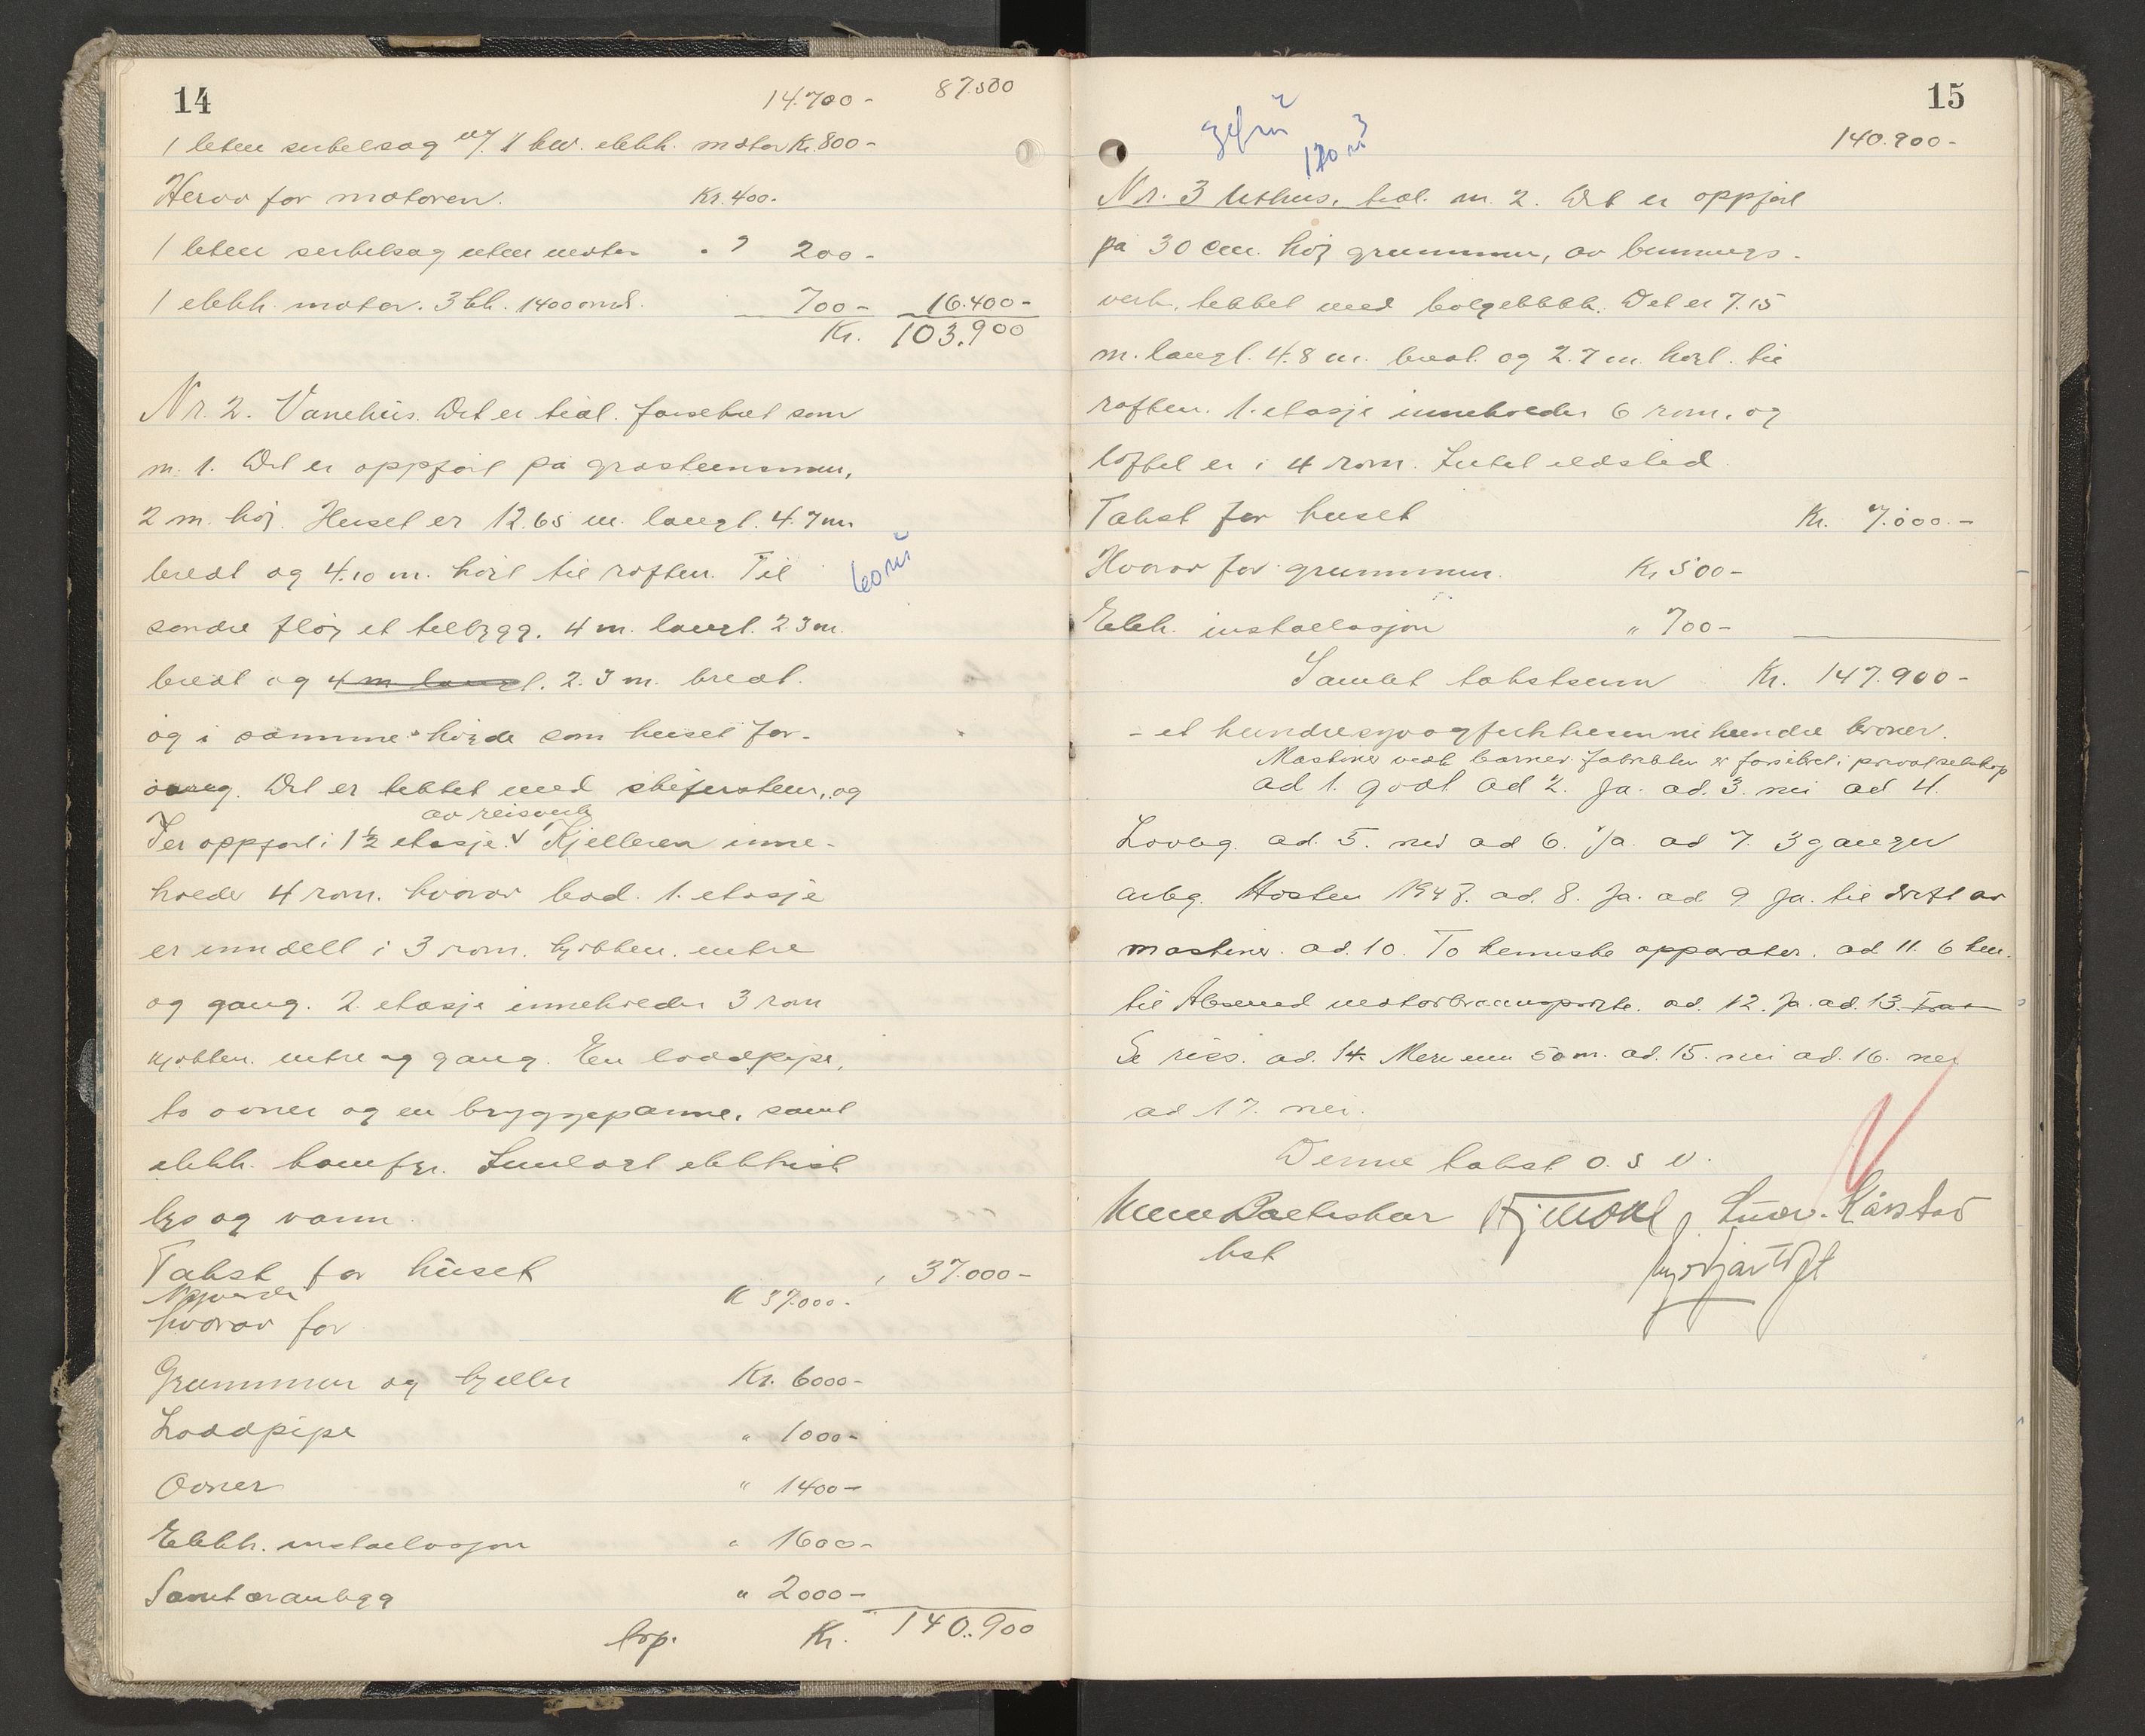 14
14.700- 87.500
1 liten sirkelsag m/. 1 kw. elekk. motor Kr. 800-
Herav for motoren. Kr. 400.
1 liten sirkelsag uten motor " 200-
1 elekk. motor. 3 hk. 1400 omd. 700- 16.400-
Kr. 103.900
Nr. 2. Vånehus. Det er tidl. forsikret som
nr. 1. Det er oppført på gråsteinsmur,
2 m. høy. Huset er 12.65 m. langt. 4.7 m
bredt og 4.10 m. høit til raften. Til
600 m³
søndre fløy et tilbygg. 4 m. langt. 2.3 m.
bredt og 4 m langt. 2.3 m. bredt.
og i samme høide som huset for-
øvrig. Det er tekket med skiferstein, og
av reisverk
er oppført i 1½ etasje. Kjelleren inne-
holder 4 rom. hvorav bad. 1. etasje
er inndelt i 3 rom. kjøkken. entre
og gang. 2. etasje inneholder 3 rom
kjøkken. entre og gang. En loddpipe,
to ovner og en bryggepanne, samt
elekk. komfyr. Innlagt elektrisk
lys og vann.
Takst for huset , 37.000-
K 37.000-
hvorav for
Grunnmur og kjeller Kr. 6000-
Loddpipe " 1000-
Ovner " 1400-
Elekk. installasjon " 1600-
Sanitæranlegg " 2000-
trp. Kr. 140.900
15
140.900-
170 m³
Nr. 3 Uthus, tidl. nr. 2. Det er oppført
på 30 cm. høy grunnmur, av binnings-
verk, tekket med bølgeblikk. Det er 7.15
m. langt. 4.8 m. bredt. og 2.7 m. høit. til
raften. 1. etasje inneholder 6 rom, og
loftet er i 4 rom. Intet ildsted
Takst for huset Kr. 7.000.-
Hvorav for grunnmur. Kr 500-
Elekk. installasjon " 700-
Samlet takstsum Kr. 147.900-
- et hundresyvogførtitusennihundre kroner.
Maskiner vedk. fabrikken er forsikret i privatselskap
ad 1. godt ad 2. Ja. ad. 3. nei ad 4.
Lovlig. ad. 5. nei ad 6. Ja. ad 7. 3 ganger
årlig. Høsten 1948. ad. 8. Ja. ad 9 Ja. til drift av
maskiner. ad. 10. To kemiske apparater. ad 11. 6 km.
til motorbrannsprøite. ad. 12. Ja. ad. 13.
Se riss. ad. 14. Mer enn 50 m. ad. 15. nei ad. 16. nei
ad 17. nei.
Denne takst o. s v.
Ludv. Kårstad